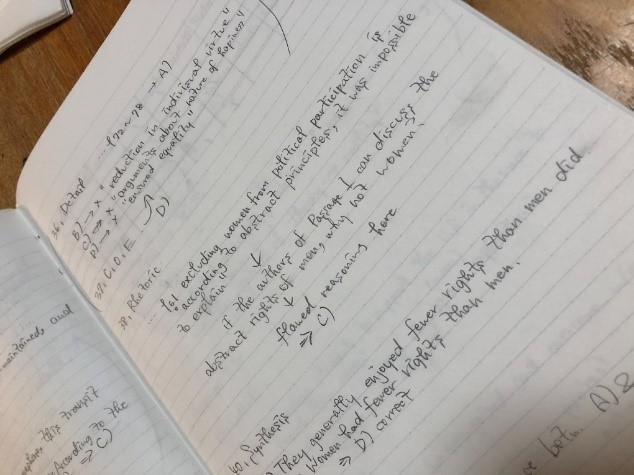 36. Detail ... 172~78 → A)
B) → x "reduction in individual virtue"
C) → x "arguments about "nature of hapiness"
D) → x "ensured equality"
37. C.O.E ↗ D)
38. Rhetoric
... 61 excluding women from political participation is
"according to abstract principles, it was impossible
to explain"
↓
if the authors of Passage 1 can discuss the
abstract rights of men, why not women?
↓
flawed reasoning here
⇒ C)
40. Synthesis
They generally enjoyed fewer rights than men did.
Women had fewer rights than men.
⇒ D) correct
A) &
maintained and
transit
According to the
⇒ C)